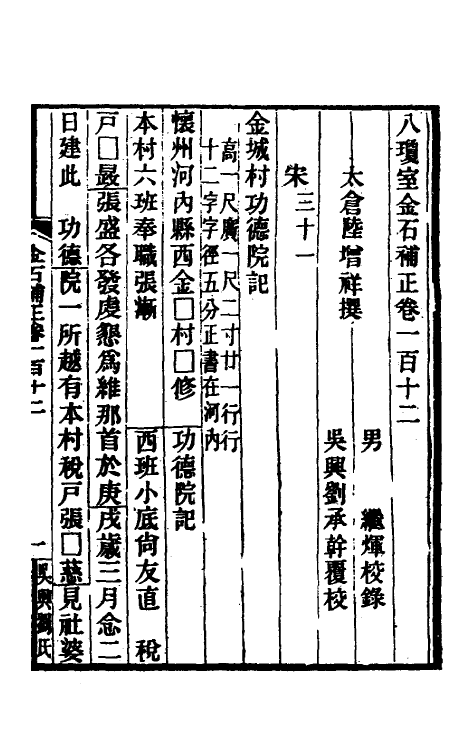 八瓊室金石補正卷一百十二
太倉陸增祥撰
男　繼煇校錄
吳興劉承幹覆校
宋三十一
金城村功德院記
高一尺廣一尺二寸廿一行行
十二字字徑五分正書在河內
懷州河內縣西金□村□修　功德院記
本村六班奉職張漸　西班小底尙友直　稅
戶□最張盛各發虔懇爲維那首於庚戌歲三月念二
日建此　功德院一所越有本村稅戶張□慈見社婆
金石補正卷一百十二
一
吳興劉氏